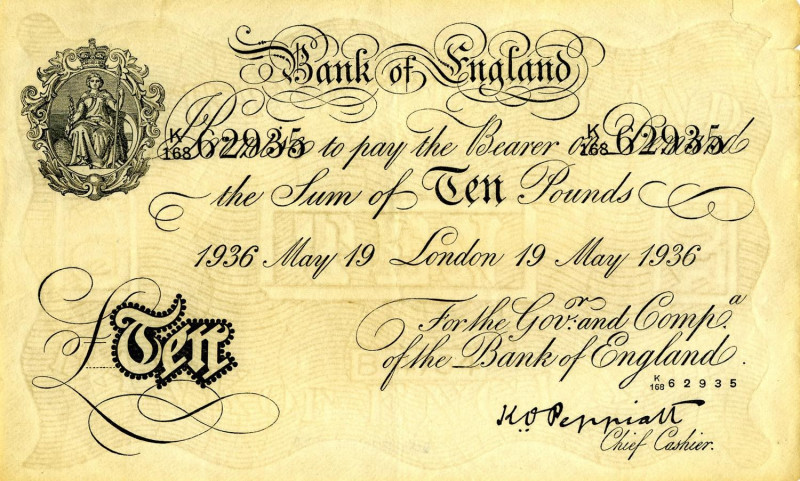 Bank of England
K/168 62935 K/168 62935
I Promise to pay the Bearer on Demand
the Sum of Ten Pounds
1936 May 19 London 19 May 1936
For the Govr. and Compa.
of the Bank of England.
K/168 62935
£Ten
K.O Peppiatt
Chief Cashier.